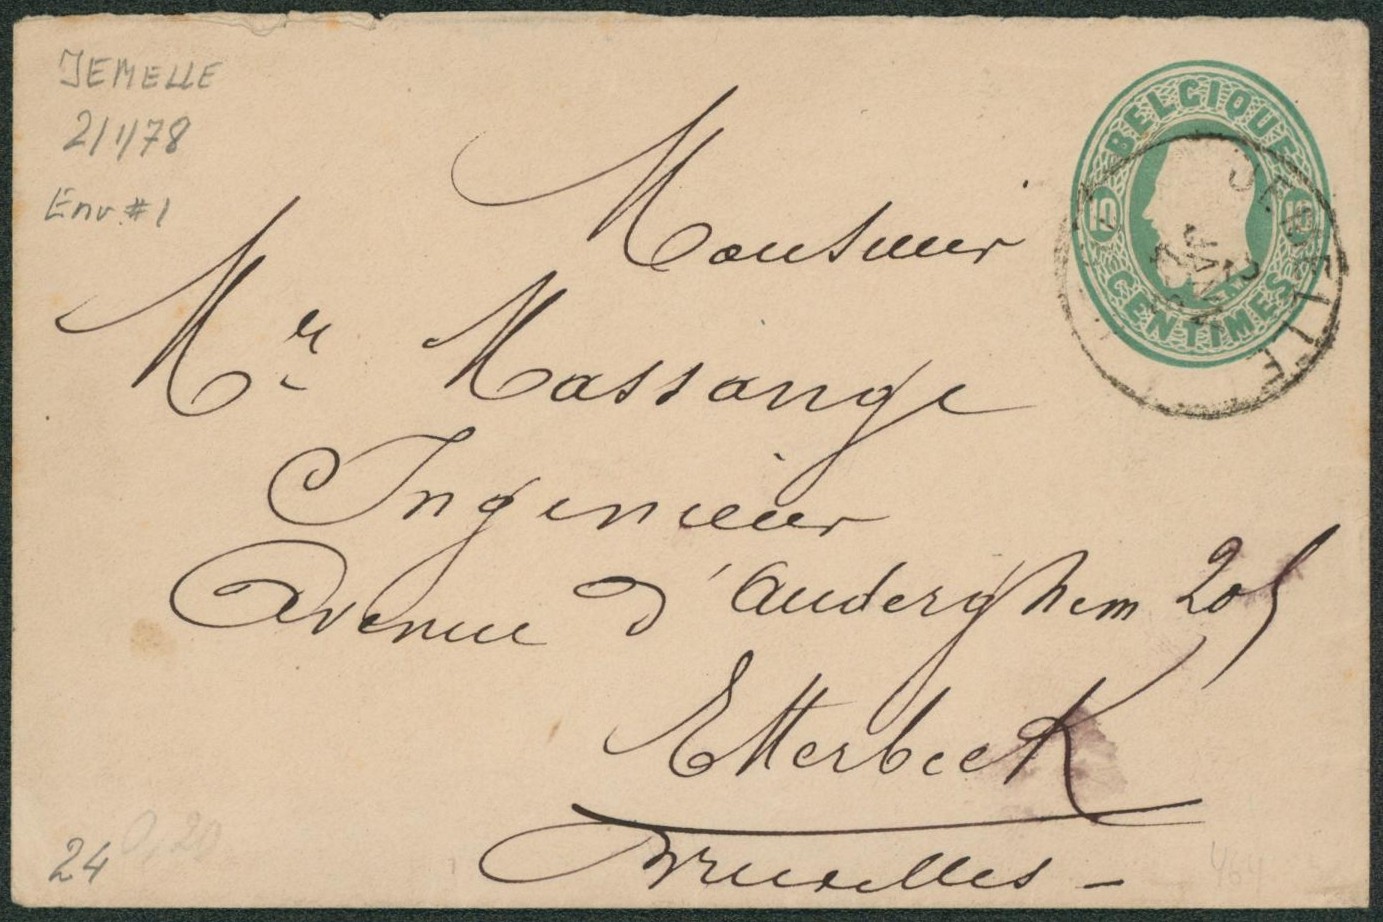 JEMELLE
2/1/78
Env #1
BELGIQUE
10 10
CENTIMES
JEMELLE
2
JANV
Monsieur
Mr Massange
Ingenieur
Avenue d'Auderghem 205
Etterbeek
Bruxelles –
24 0,20
464